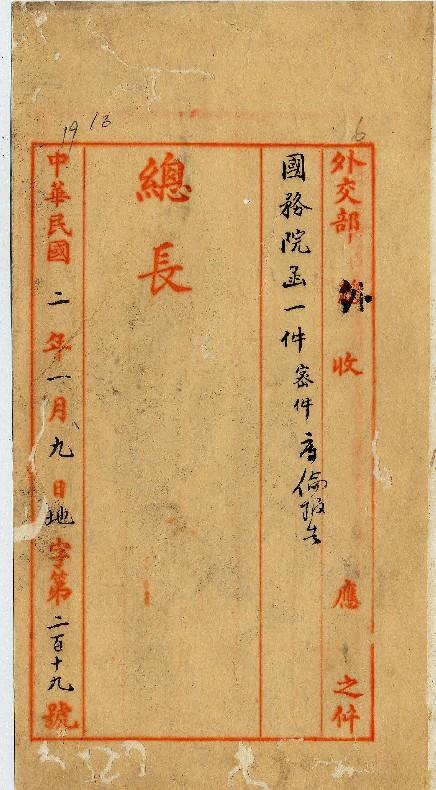 外交部 外收 應 之件
國務院函一件 密件 庫倫報告
總長
中華民國二年一月九日地字第二百十九號
19 13
6